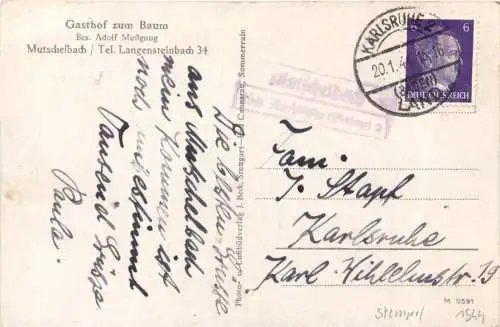 Gasthof zum Baum
Bes. Adolf Meßgang
Mutschelbach / Tel. Langensteinbach 34
Die besten Grüße
aus Mutschelbach
mein Kommen ist
noch unbestimmt
Tausend Grüße
Paula.
Photo- u. Kunstbildverlag J. Beck, Stuttgart-Bad Cannstatt, Sommerrain
KARLSRUHE
20.1.4
LAND
6
DEUTSCHES REICH
Mutschelbach
über Karlsruhe (Baden) 2
Fam.
J. Stapf
Karlsruhe
Karl Wihlelmstr. 19
M 0591
Stempel 1944